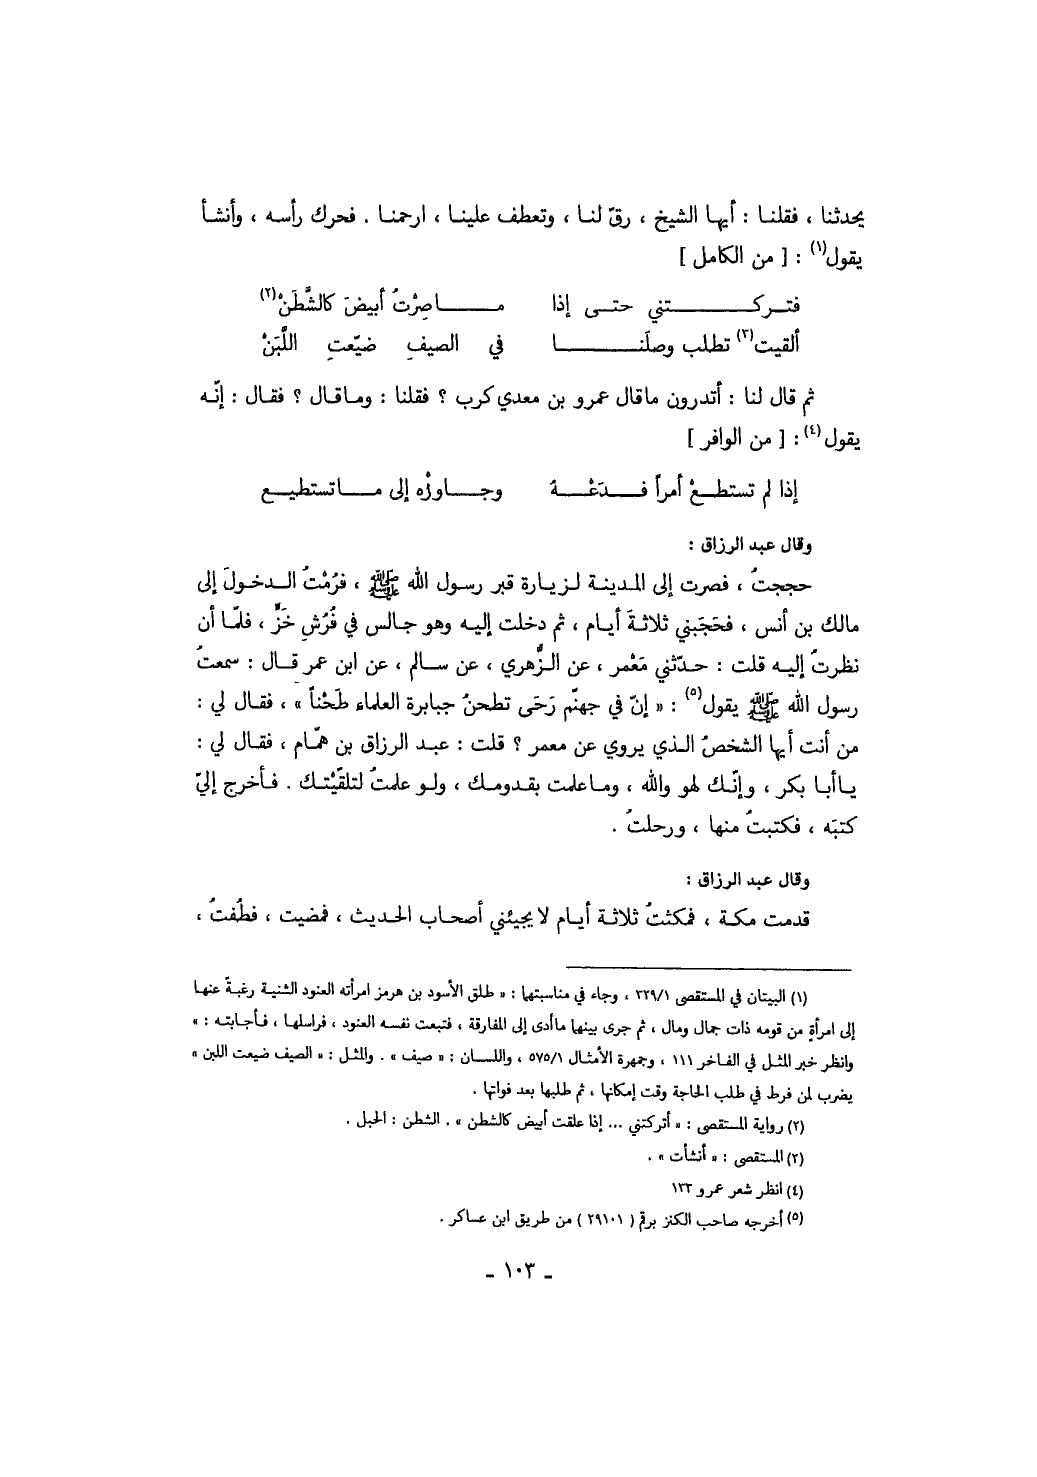 يحدثنا ، فقلنا : أيها الشيخ ، رقّ لنا ، وتعطف علينا ، ارحمنا . فحرك رأسه ، وأنشأ
يقول(١) : [ من الكامل ]
فتركتني حتى إذا ماصِرْتُ أبيضَ كالشَّطَنْ(٢)
ألقيت(٣) تطلب وصلَنا في الصيفِ ضيّعتِ اللَّبَنْ
ثم قال لنا : أتدرون ماقال عمرو بن معدي كرب ؟ فقلنا : وماقال ؟ فقال : إنّه
يقول(٤) : [ من الوافر ]
إذا لم تستطعْ أمراً فدَعْهُ وجاوزْه إلى ماتستطيع
وقال عبد الرزاق :
حججتُ ، فصرت إلى المدينة لزيارة قبر رسول الله ﷺ ، فرُمْتُ الدخولَ إلى
مالك بن أنس ، فحَجَبني ثلاثةَ أيام ، ثم دخلت إليه وهو جالس في فُرُشِ خَزٍّ ، فلمّا أن
نظرتُ إليه قلت : حدّثني مَعْمر ، عن الزُّهري ، عن سالم ، عن ابن عمر قال : سمعتُ
رسول الله ﷺ يقول(٥) : « إنّ في جهنّم رَحَى تطحنُ جبابرة العلماء طَحْناً » ، فقال لي :
من أنت أيها الشخصُ الذي يروي عن معمر ؟ قلت : عبد الرزاق بن همّام ، فقال لي :
ياأبا بكر ، وإنّك لهو والله ، وماعلمت بقدومك ، ولو علمتُ لتلقّيْتك . فأخرج إليّ
كتبَه ، فكتبتُ منها ، ورحلتُ .
وقال عبد الرزاق :
قدمت مكة ، فمكثتُ ثلاثة أيام لايجيئني أصحاب الحديث ، فمضيت ، فطُفتُ ،
(١) البيتان في المستقصى ٣٢٩/١ ، وجاء في مناسبتها : « طلق الأسود بن هرمز امرأته العنود الشنية رغبةً عنها
إلى امرأةٍ من قومه ذات جمال ومال ، ثم جرى بينها ماأدى إلى المفارقة ، فتبعت نفسه العنود ، فراسلها ، فأجابته : »
وانظر خبر المثل في الفاخر ١١١ ، وجمهرة الأمثال ٥٧٥/١ ، واللسان : « صيف » . والمثل : « الصيف ضيعت اللبن »
يضرب لمن فرط في طلب الحاجة وقت إمكانها ، ثم طلبها بعد فواتها .
(٢) رواية المستقصى : « أتركتني ... إذا علقت أبيض كالشطن » . الشطن : الحبل .
(٣) المستقصى : « أنشأت » .
(٤) انظر شعر عمرو ١٣٣
(٥) أخرجه صاحب الكنز برقم ( ٢٩١٠١ ) من طريق ابن عساكر .
ـ ١٠٣ ـ